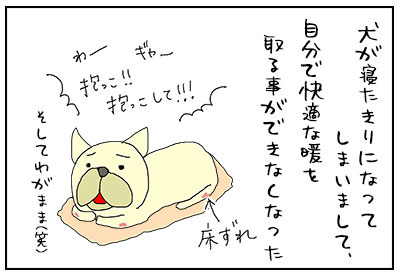 犬が寝たきりになって
しまいまして、
自分で快適な暖を
取る事ができなくなった
ギャー
わー
抱っこ!!
抱っこして!!!
床ずれ
そしてわがまま(笑)